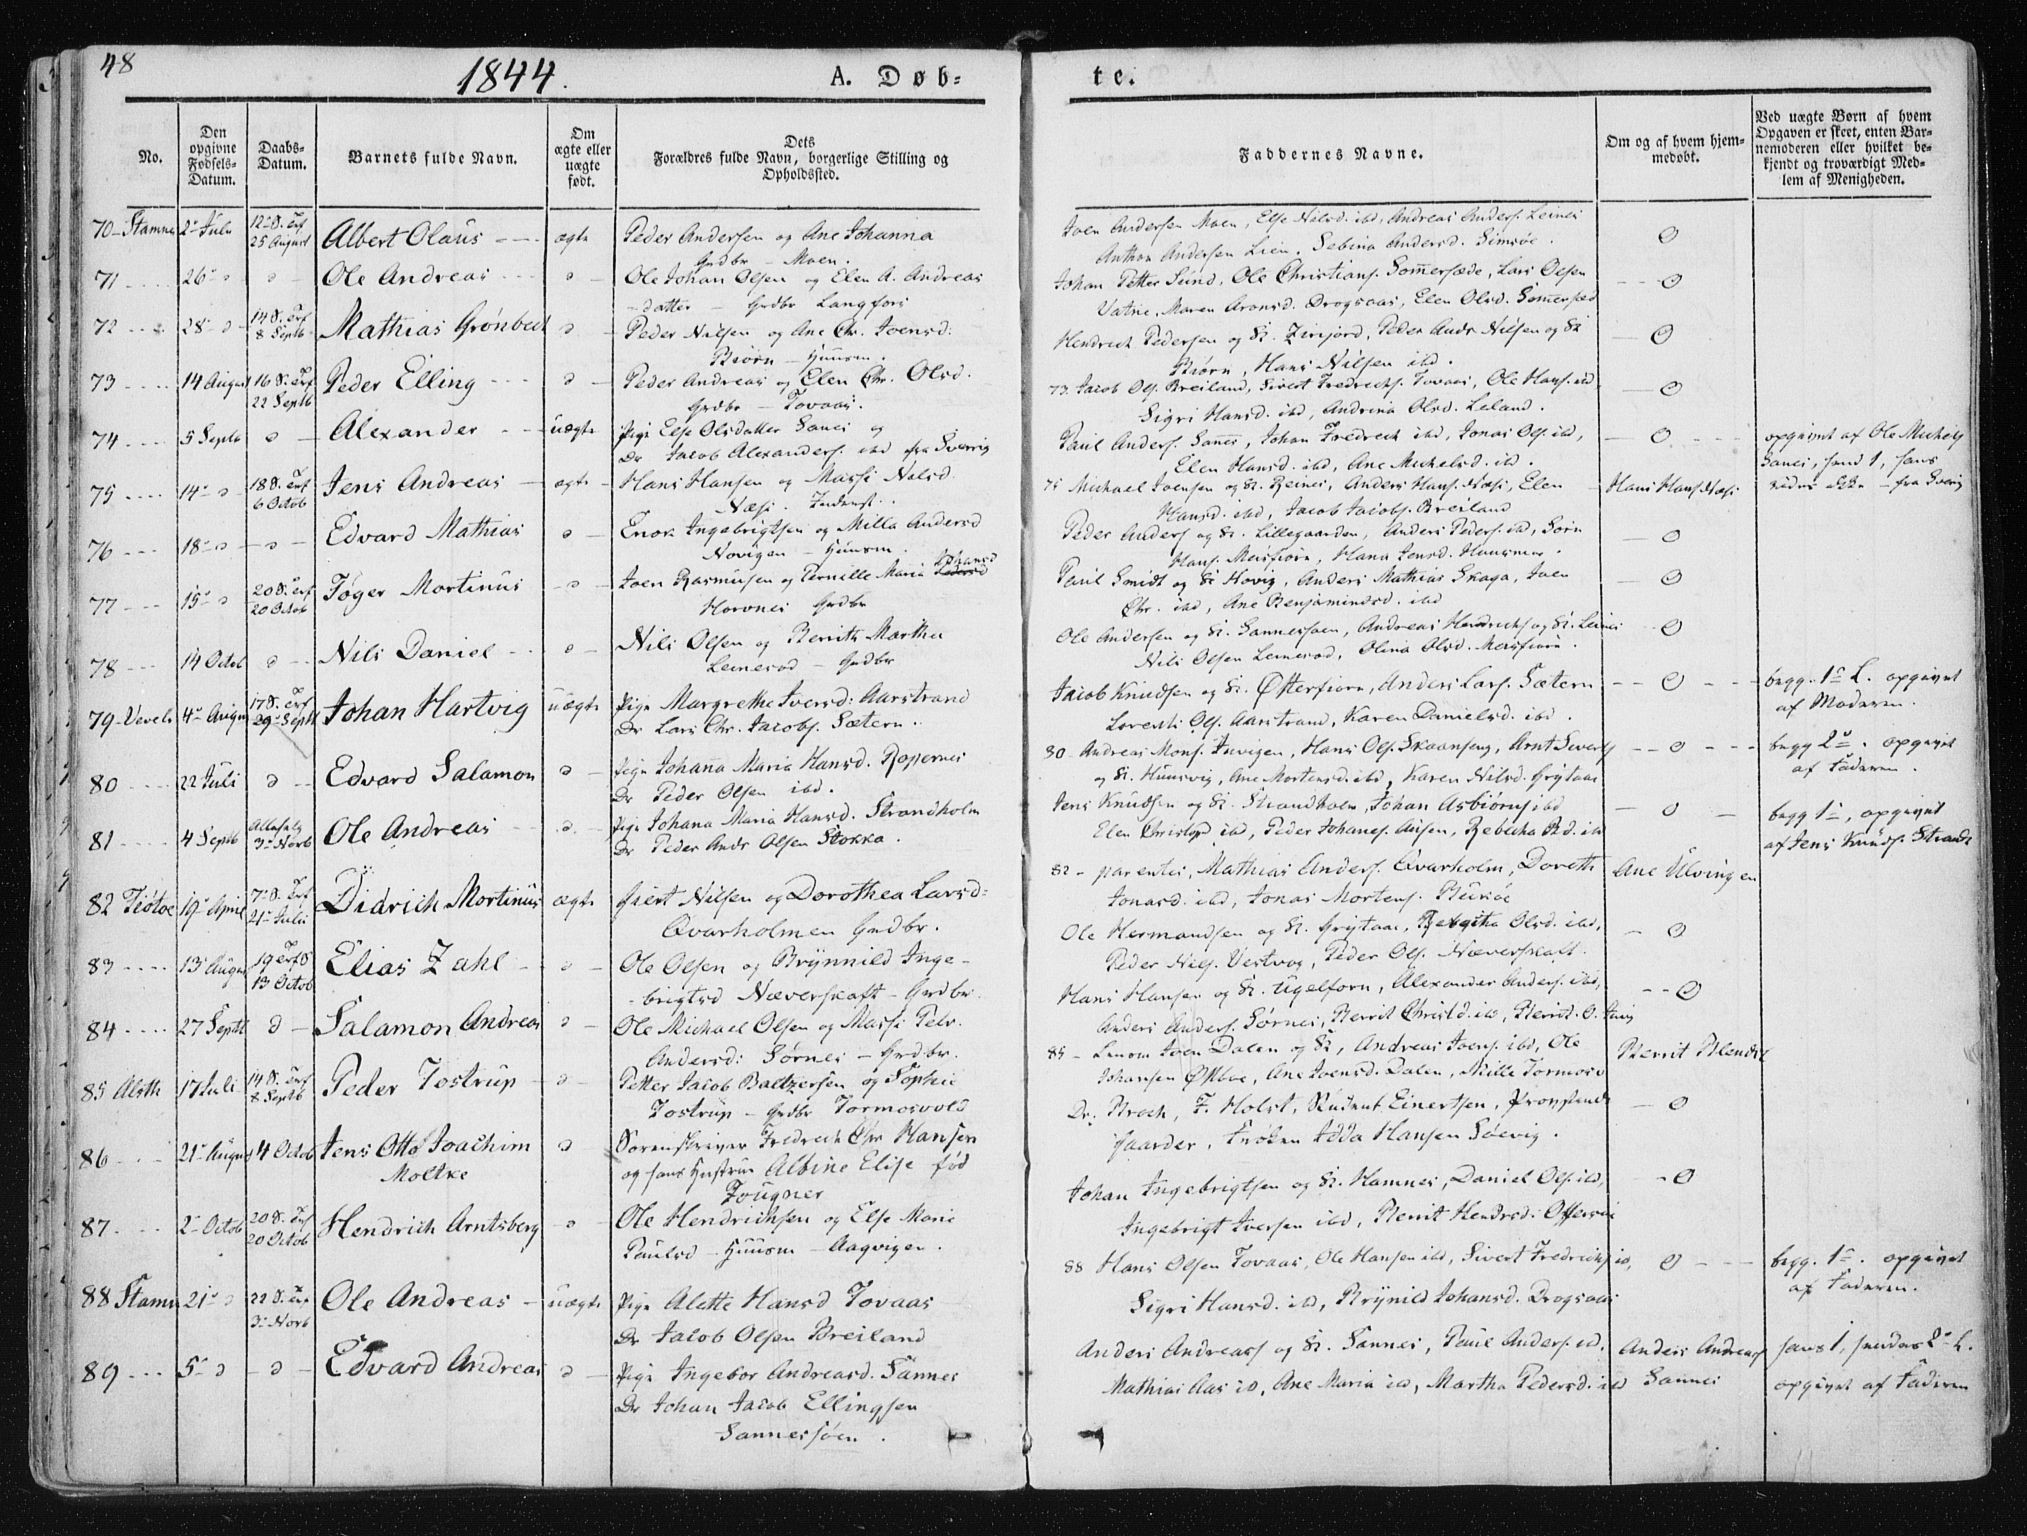 48
1844.
A. Døb-
te.
No.
Den opgivne Fødsels-Datum.
Daabs-Datum.
Barnets fulde Navn.
Om ægte eller uægte født.
Dets Forældres fulde Navn, borgerlige Stilling og Opholdssted.
Faddernes Navne.
Om og af hvem hjemmedøbt.
Ved uægte Børn af hvem Opgaven er skeet, enten Barnemoderen eller hvilket bekjendt og troværdigt Medlem af Menigheden.
70 - Stamnes
25 August
Albert Olaus
ægte
Peder Andersen og Ane Johanna
Grdbr - Moen.
Joen Andersen Moen, Else Nilsd. ibd, Andreas Anders. Leines
Anthon Andersen Lien, Sebina Andersd. Simsøe.
71
26
Ole Andreas
Ole Johan Olsen og Elen A. Andreas
-datter - Grdbr Langfors
Johan Petter Sund, Ole Christians. Sommersæde, Lars Olsen
Vatne, Maren Aronsd. Drogsaas, Elen Olsd. Sommersæd
72
28
8 Septb
Mathias Grønbech
Peder Nilsen og Ane Chr. Joensd.
Biørn - Huusm.
Hendrich Pedersen og K. Zirifjord, Peder Andr Nilsen og K
Biørn, Hans Nilsen ibd.
73
14 August
22 Septb
Peder Elling
Peder Andreas og Elen Chr. Olsd.
Grdbr - Tovaas.
73. Jacob Ols. Breiland, Sivert Fredrichs. Tovaas, Ole Hans. ibd,
Sigri Hansd. ibd, Andrina Olsd. Leland.
74
5 Septb
Alexander
uægte
Pige Else Olsdatter Sanes og
Dr Jacob Alexanders. ibd fra Sverrig
Paul Anders. Sanes, Johan Fredrich ibd, Jonas Ols. ibd,
Elen Hansd. ibd, Ane Michelsd. ibd.
opgivet af Ole Michels
Sanes, hend 1, hans
vides ikke - fra Sverig
75
14
6 Octob
Jens Andreas
ægte
Hans Hansen og Massi Nilsd.
Næss. Inderst.
75 Michael Joensen og K. Reines, Anders Hans. Næss, Elen
Hansd. ibd, Jacob Jacobs. Breiland
Hans Hans. Næss
76
18
Edvard Mathias
Enok Ingebrigtsen og Milla Andersd
Novigen - Huusm.
Peder Anders og K. Lillegaarden, Anders Peders. ibd, Sørn
Hans. Meisfiorn, Hana Jensd. Huusmoe.
77
15
20 Octob
Tøger Mortinus
Joen Rasmusen og Pernille Maria Johansd
Hovnes Grdbr
Paul Smidt og K Hovig, Anders Mathias Skaga, Joen
Chr. ibd, Ane Benjaminsd. ibd
78
14 Octob
Nils Daniel
Nils Olsen og Berrith Martha
Leinesod - Grdbr
Ole Andersen og K. Sannessøen, Andreas Hendrichs og K. Leines
Nils Olsen Leinesod, Olina Olsd. Meisfiorn.
79 - Vevels
4 August
29 Septb
Johan Hartvig
uægte
Pige Margrethe Iversd: Aarstrand
Dr Lars Chr. Jacobs. Sætern.
Jacob Knudsen og K. Østerfiorn, Anders Lars. Sætern
Lorents Ols. Aarstrand, Karen Danielsd. ibd.
begg. 1ste L. opgivet
af Moderen.
80
22 Juli
Edvard Salamon
Pige Johanna Maria Hansd. Roparnes
Dr Peder Olsen ibd.
80 - Andreas Mons. Invigen, Hans Ols. Skaanseng, Arnt Siverts
og K. Huusvig, Ane Mortensd. ibd, Karen Nilsd. Grytaae
begg 2. opgivet
af Faderen.
81
4 Septb
3 Novb
Ole Andreas
Pige Johana Maria Hansd. Strandholm
Dr Peder Andr Olsen Stokka.
Jens Knudsen og K. Strandholm, Johan Asbiørns ibd
Elen Christopd. ibd, Peder Johanes. Ausen, Rebecka Pd. ibd
begg 1, opgivet
af Jens Knuds. Strandh
82 Tiøtoe
19 April
21 Juli
Didrich Mortinus
ægte
Giert Nilsen og Dorothea Larsd:
Qvarholmen Grdbr.
82 - parentes, Mathias Anders. Qvarholm, Doreth
Jonasd. ibd, Jonas Mortens. Buroe
Ane Ulvingen
83
13 August
13 Octob
Elias Zahl
Ole Olsen og Brynnild Inge-
-brigtsd Næverskaft - Grdbr.
Ole Hermandsen og K. Grytaae, Rebecka Olsd. ibd,
Peder Nils. Vestvog, Peder Ols. Næverskaft.
84
27 Septb
Salamon Andreas
Ole Michael Olsen og Massi Pelr.
Andersd: Sørnes - Grdbr.
Hans Hansen og K. Ugelforn, Alexander Anders. ibd,
Anders Anders. Sørnes, Berrit Christd. ibd,
85 Alsth
17 Juli
8 Septb
Peder Tostrup
Petter Jacob Baltzersen og Sophie
Tostrup - Grdbr Tormosvold
85 - Lensm Joen Dalen og K, Andreas Joens. ibd, Ole
Johansen Østboe, Ane Joensd. Dalen, Mille Tormosv
Berrit
86
21 August
4 Octob
Jens Otto Joachim
Moltke
Sorenskriver Fredrich Chr Hansen
og hans Hustrue Albine Elise fød
Fougner
Dr. Broch, F. Holst, Student Einertsen, Provstinde
Gaarder, Frøken Idda Hansen Søevig.
87
2 Octob
20 Octob
Hendrich Arntsberg
Ole Hendrichsen og Else Marie
Paulsd - Huusm - Aagvigen.
Johan Ingebrigtsen og K. Hamnes, Daniel Ols. ibd,
Ingebrigt Iversen ibd, Berrit Hendrsd: Offersøe
88 Stamn
21
3 Novb
Ole Andreas
uægte
Pige Alette Hansd Tovaas
Dr Jacob Olsen Breiland
88 Hans Olsen Tovaas, Ole Hansen ibd, Sivert Fredrichs ibd,
Sigri Hansd. ibd, Brynild Johansd. Drogsaas
begg. 1. opgivet
af Faderen.
89
5
Edvard Andreas
Pige Ingebor Andreasd. Sannes
Dr Johan Jacob Ellingsen
Sannessøen.
Anders Andreass og K. Sannes, Paul Anders. ibd,
Mathias Aas ibd, Ane Maria ibd, Martha Pedersd. ibd
Anders Andreass
Sannes
hans 1, hendes 2 L.
opgivet af Faderen